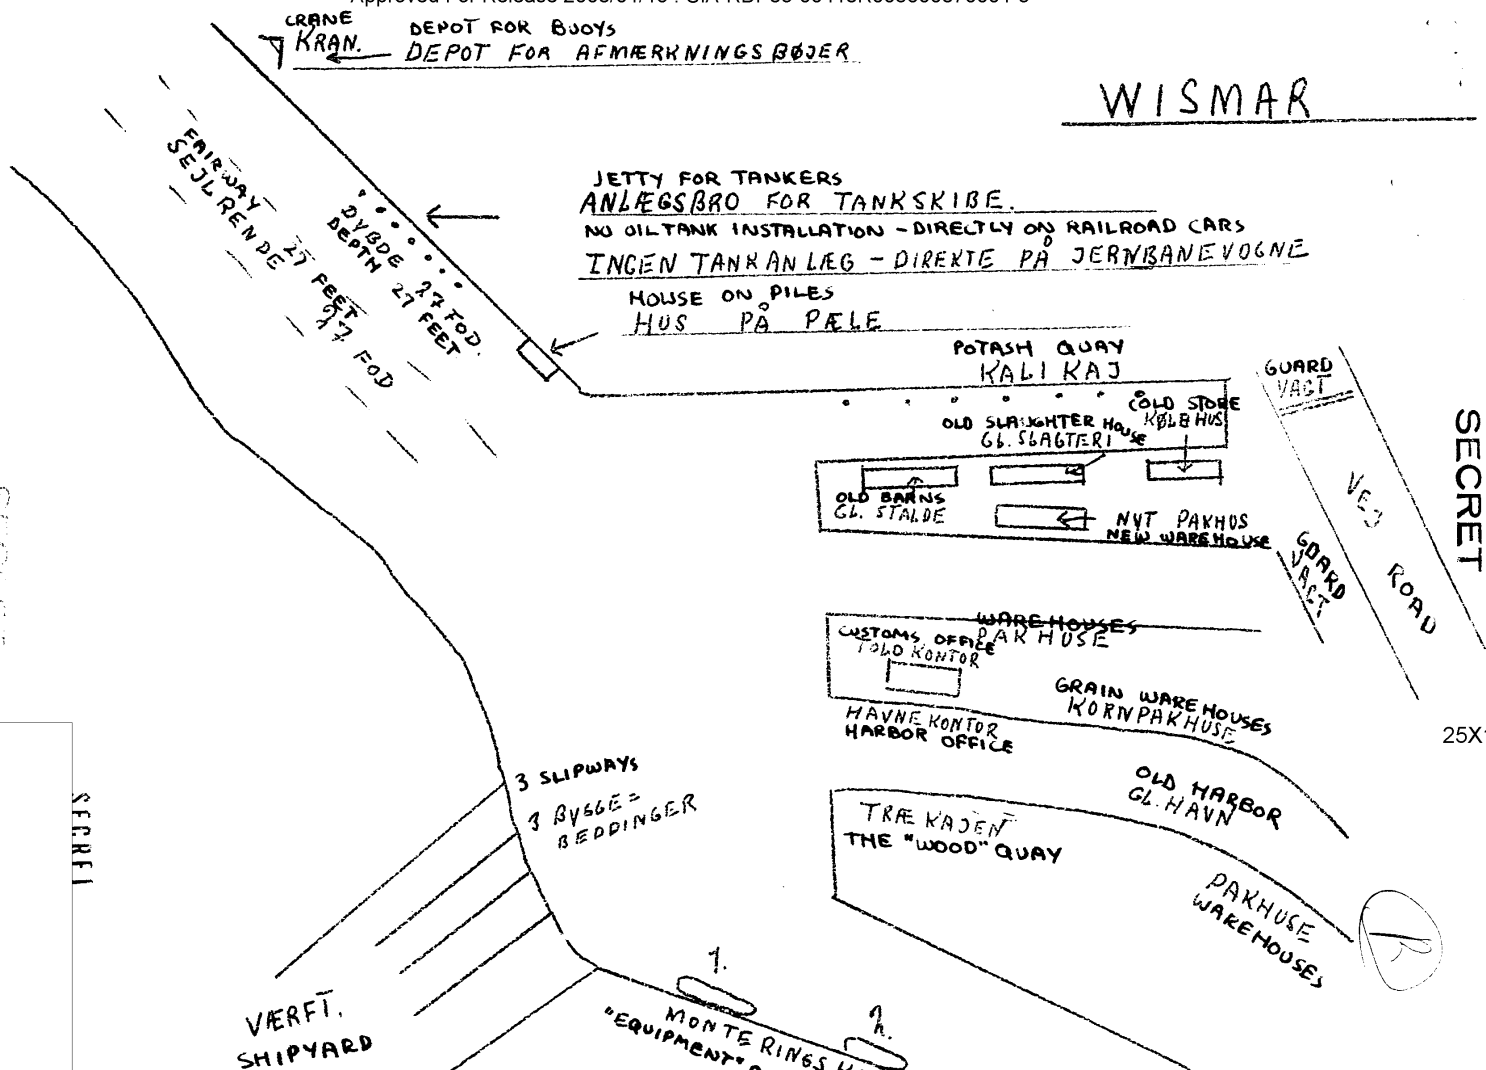 CRANE
KRAN.
DEPOT FOR BUOYS
DEPOT FOR AFMÆRKNINGSBØJER
WISMAR
FAIRWAY 27 FEET
SEJLRENDE 27 FOD
DYBDE 27 FOD.
DEPTH 27 FEET
JETTY FOR TANKERS
ANLÆGSBRO FOR TANKSKIBE.
NO OIL TANK INSTALLATION - DIRECTLY ON RAILROAD CARS
INGEN TANKANLÆG - DIREKTE PÅ JERNBANEVOGNE
HOUSE ON PILES
HUS PÅ PÆLE
POTASH QUAY
KALI KAJ
GUARD
VAGT
COLD STORE
KØLEHUS
OLD SLAUGHTER HOUSE
GL. SLAGTERI
OLD BARNS
GL. STALDE
NYT PAKHUS
NEW WAREHOUSE
SECRET
VEJ
ROAD
GUARD
VAGT
WAREHOUSES
PAKHUSE
CUSTOMS OFFICE
TOLDKONTOR
GRAIN WAREHOUSES
KORNPAKHUSE
HAVNEKONTOR
HARBOR OFFICE
25X1
OLD HARBOR
GL. HAVN
3 SLIPWAYS
3 BYGGE=
BEDDINGER
TRÆKAJEN
THE "WOOD" QUAY
SECRET
PAKHUSE
WAREHOUSES
1.
2.
VÆRFT.
SHIPYARD
MONTERINGS
"EQUIPMENT"